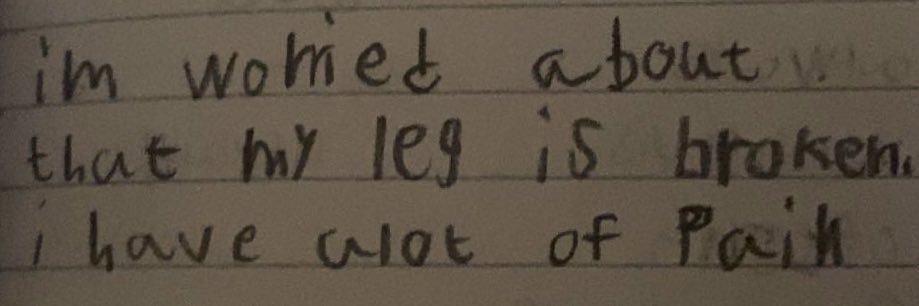 im worried about
that my leg is broken.
i have alot of Pain